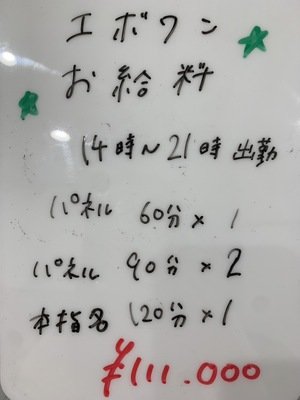 エボワン
お給料
14時〜21時 出勤
パネル 60分×1
パネル 90分×2
本指名 120分×1
¥111.000